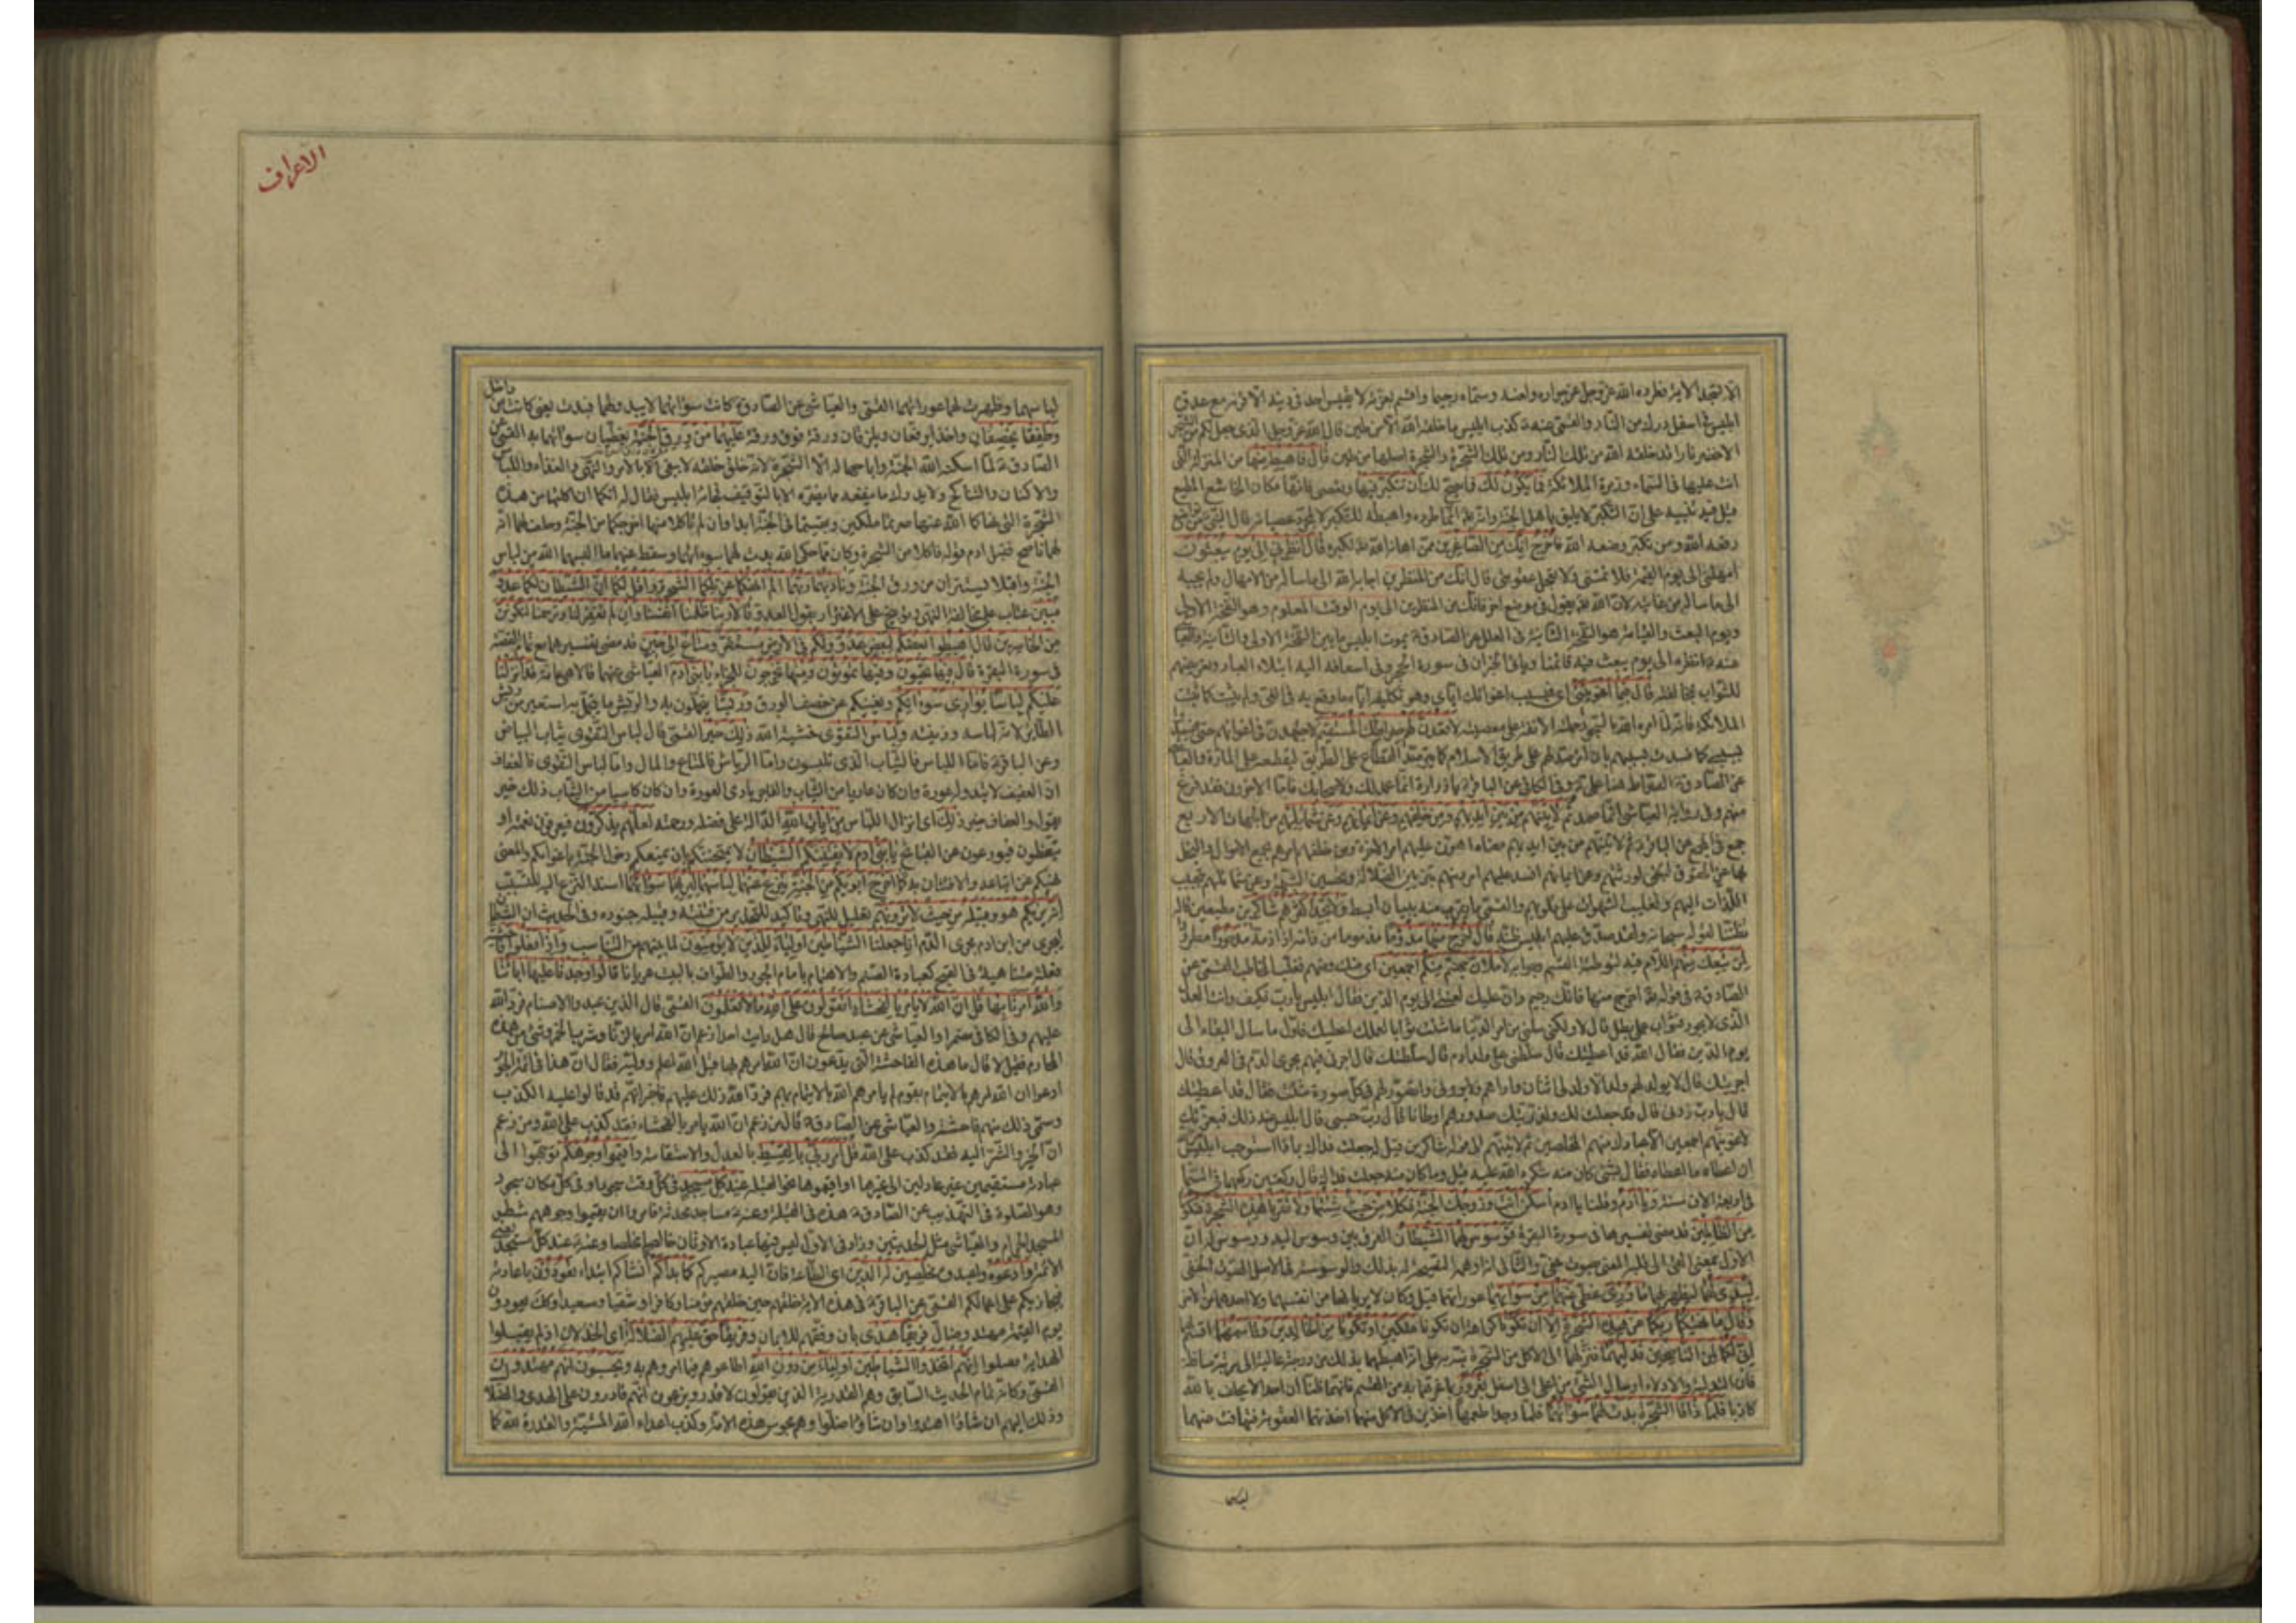 الا لتجدا الآية فطرده الله عز وجل عن جواره ولعنه وسماه رجيما واقسم بعزته لا يقيس احد في دينه الا قرنه مع عدوه
ابليس في اسفل درك من النار والقمي عنه كذب ابليس ما خلقه الله الا من طين قال الله عز وجل الذي جعل لكم من الشجر
الاخضر نارا قد خلقه الله من تلك النار ومن تلك الشجرة والشجرة اصلها من طين قال فاهبط منها من المنزلة التي
انت عليها في السماء وزمرة الملائكة فما يكون لك فما يصح لك ان تتكبر فيها وتعصي فانها مكان الخاشع المطيع
قيل فيه تنبيه على ان التكبر لا يليق باهل الجنة وانه تعالى انما طرده واهبطه للتكبر لا لمجرد عصيانه قال النبي من تواضع
رفعه الله ومن تكبر وضعه الله فاخرج انك من الصاغرين ممن اهانه الله لكبره قال انظرني الى يوم يبعثون
امهلني الى يوم القيمة فلا تمتني ولا تعجل عقوبتي قال انك من المنظرين اجابه الله الى ما سأله من الامهال ولم يجبه
الى ما سأله من غايته لان الله يقول في موضع اخر فانك من المنظرين الى يوم الوقت المعلوم وهو النفخة الاولى
ويوم البعث والقيامة هو النفخة الثانية في العلل عن الصادق يموت ابليس ما بين النفخة الاولى والثانية
عنه انظره الى يوم يبعث فيه قائمنا ويأتي الخبران في سورة الحجر وفي اسعافه اليه ابتلاء العباد وتعريضهم
للثواب بمخالفته قال فبما اغويتني اي فبسبب اغوائك اياي وهو تكليفه اياه ما وقع به في الغي ولم يثبت كما ثبتت
عن الصادق الصراط هنا علي وفي الكافي عن الباقر يا زرارة انما صمد لك ولاصحابك فاما الاخرون فقد فرغ
منهم وفي رواية العياشي انما صمد ثم لاتينهم من بين ايديهم ومن خلفهم وعن ايمانهم وعن شمائلهم من الجهات الاربع
الصادق في قوله اخرج منها فانك رجيم وان عليك لعنتي الى يوم الدين فقال ابليس يا رب فكيف وانت العدل
الذي لا يجور فثواب عملي بطل قال لا ولكن سلني من امر الدنيا ما شئت ثوابا لعملك اعطيك فاول ما سأل البقاء الى
يوم الدين فقال الله قد اعطيتك قال سلطني على ولد ادم قال سلطتك قال اجرني فيهم مجرى الدم في العروق قال
اجريتك قال لا يولد لهم ولد الا ولد لي اثنان واراهم ولا يروني واتصور لهم في كل صورة شئت فقال قد اعطيتك
قال يا رب زدني قال قد جعلت لك ولذريتك صدورهم اوطانا قال رب حسبي قال ابليس عند ذلك فبعزتك
لاغوينهم اجمعين الا عبادك منهم المخلصين ثم لاتينهم الى قوله شاكرين قيل له جعلت فداك بماذا استوجب ابليس
ان اعطاه ما اعطاه فقال بشيء كان منه شكره الله عليه قيل وما كان منه جعلت فداك قال ركعتين ركعهما في السماء
في اربعة الاف سنة ويا ادم وقلنا يا ادم اسكن انت وزوجك الجنة فكلا من حيث شئتما ولا تقربا هذه الشجرة فتكونا
من الظالمين قد مضى تفسيرها في سورة البقرة فوسوس لهما الشيطان الفرق بين وسوس اليه ووسوس له ان
ليبدي لهما ليظهر لهما ما ووري غطي عنهما من سوآتهما عوراتهما قيل وكانا لا يريانها من انفسهما ولا احدهما من الاخر
وقال ما نهيكما ربكما عن هذه الشجرة الا ان تكونا كراهة ان تكونا ملكين او تكونا من الخالدين وقاسمهما اقسم لهما
اني لكما لمن الناصحين فدليهما فنزلهما الى الاكل من الشجرة نبه به على انه اهبطهما بذلك من درجة عالية الى رتبة سافلة
فان التدلية والادلاء ارسال الشيء من اعلى الى اسفل بغرور بما غرهما به من القسم فانهما ظنا ان احدا لا يحلف بالله
كاذبا فلما ذاقا الشجرة بدت لهما سوآتهما فلما وجدا طعمها اخذين في الاكل منها اخذتهما العقوبة فتهافت عنهما
لباس
الاعراف
لباسهما وظهرت لهما عوراتهما القمي والعياشي عن الصادق كانت سوآتهما لا يبدو لهما فبدت يعني كانت من داخل
وطفقا يخصفان واخذا يرقعان ويلزقان ورقة فوق ورقة عليهما من ورق الجنة يغطيان سوآتهما به القمي عن
الصادق لما اسكنه الله الجنة واباحها له الا الشجرة لانه خلق خلقة لا يبقى الا بالامر والنهي والغذاء واللباس
والاكنان والتناكح ولا يدرك ما ينفعه مما يضره الا بالتوقيف فجاءه ابليس فقال له انكما ان اكلتما من هذه
الشجرة التي نهاكما الله عنها صرتما ملكين وبقيتما في الجنة ابدا وان لم تأكلا منها اخرجكما من الجنة وحلف لهما انه
لهما ناصح فقبل ادم قوله فاكلا من الشجرة وكان كما حكى الله بدت لهما سوءاتهما وسقط عنهما ما البسهما الله من لباس
الجنة واقبلا يستتران من ورق الجنة وناديهما ربهما الم انهكما عن تلكما الشجرة واقل لكما ان الشيطان لكما عدو
مبين عتاب على مخالفة النهي وتوبيخ على الاغترار بقول العدو قالا ربنا ظلمنا انفسنا وان لم تغفر لنا وترحمنا لنكونن
من الخاسرين قال اهبطوا بعضكم لبعض عدو ولكم في الارض مستقر ومتاع الى حين قد مضى تفسيرها مع تمام القصة
في سورة البقرة قال فيها تحيون وفيها تموتون ومنها تخرجون للجزاء يا بني ادم العياشي عنهما قالا هي عامة قد انزلنا
عليكم لباسا يواري سوءاتكم ويغنيكم عن خصف الورق وريشا يتجملون به والريش ما يتجمل به استعير من ريش
الطائر لانه لباسه وزينته ولباس التقوى خشية الله ذلك خير القمي قال لباس التقوى ثياب البياض
وعن الباقر فاما اللباس فالثياب التي تلبسون واما الرياش فالمتاع والمال واما لباس التقوى فالعفاف
ان العفيف لا تبدو له عورة وان كان عاريا من الثياب والفاجر بادي العورة وان كان كاسيا من الثياب ذلك خير
يقول والعفاف خير ذلك اي انزال اللباس من ايات الله الدالة على فضله ورحمته لعلهم يذكرون فيعرفون نعمته او
يتعظون فيتورعون عن القبائح يا بني ادم لا يفتننكم الشيطان لا يمحننكم بان يمنعكم دخول الجنة باغوائكم والمعنى
نهيكم عن اتباعه والافتتان به كما اخرج ابويكم من الجنة ينزع عنهما لباسهما ليريهما سوآتهما اسند النزع اليه للتسبيب
انه يريكم هو وقبيله من حيث لا ترونهم تعليل للنهي وتأكيد للتحذير من فتنته وقبيله جنوده وفي الحديث ان الشيطان
يجري من ابن ادم مجرى الدم انا جعلنا الشياطين اولياء للذين لا يؤمنون لما بينهم من التناسب واذا فعلوا فاحشة
فعلة متناهية في القبح كعبادة الصنم والايتمام بامام الجور والطواف بالبيت عريانا قالوا وجدنا عليها اباءنا
والله امرنا بها قل ان الله لا يأمر بالفحشاء اتقولون على الله ما لا تعلمون القمي قال الذين عبدوا الاصنام فرد الله
عليهم وفي الكافي مضمرا والعياشي عن عبد صالح قال هل رأيت احدا زعم ان الله امر بالزنا وشرب الخمر وشيء من هذه
المحارم فقيل لا قال ما هذه الفاحشة التي يدعون ان الله امرهم بها قيل الله اعلم ووليه فقال ان هذا في ائمة الجور
ادعوا ان الله امرهم بالايتمام بقوم لم يأمرهم الله بالايتمام بهم فرد الله ذلك عليهم فاخبر انهم قد قالوا عليه الكذب
وسمى ذلك منهم فاحشة والعياشي عن الصادق قال من زعم ان الله يأمر بالفحشاء فقد كذب على الله ومن زعم
ان الخير والشر اليه فقد كذب على الله قل امر ربي بالقسط بالعدل والاستقامة واقيموا وجوهكم توجهوا الى
عبادته مستقيمين غير عادلين الى غيرها او اقيموها نحو القبلة عند كل مسجد في كل وقت سجود او في كل مكان سجود
وهو الصلوة في التهذيب عن الصادق هذه في القبلة وعنه مساجد محدثة فامروا ان يقيموا وجوههم شطر
المسجد الحرام والعياشي مثل الحديثين وزاد في الاول ليس فيها عبادة الاوثان خالصا مخلصا وعنه عند كل مسجد يعني
الائمة وادعوه واعبدوه مخلصين له الدين اي الطاعة فان اليه مصيركم كما بدأكم انشأكم ابتداء تعودون باعادته
فيجازيكم على اعمالكم القمي عن الباقر في هذه الاية خلقهم حين خلقهم مؤمنا وكافرا وشقيا وسعيدا وكذلك يعودون
يوم القيمة مهتد وضال فريقا هدى بان وفقهم للايمان وفريقا حق عليهم الضلالة اي الخذلان اذ لم يقبلوا
الهدى فضلوا انهم اتخذوا الشياطين اولياء من دون الله اطاعوهم فيما امروهم به ويحسبون انهم مهتدون
القمي وكانه تمام الحديث السابق وهم القدرية الذين يقولون لا قدر ويزعمون انهم قادرون على الهدى والضلالة
وذلك اليهم ان شاؤا اهتدوا وان شاؤا ضلوا وهم مجوس هذه الامة وكذب اعداء الله المشية والقدرة لله كما